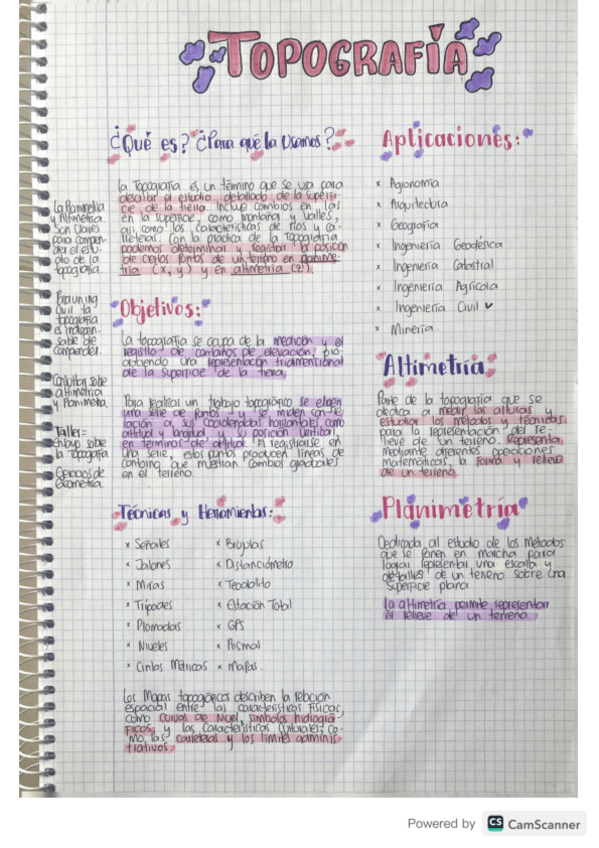 TOPOGRAFÍA
¿Qué es? ¿Para qué la Usamos?
la Topografía es un término que se usa para
describir el estudio detallado de la superfi-
cie de la tierra. Incluye cambios en las
en la superficie, como montañas y valles,
así como las características de ríos y ca-
rreteras. Con la práctica de la Topografía
podemos determinar y registrar la posición
de ciertos puntos de un terreno en planime-
tría (x, y) y en altimetría (z).
La Planimetría
y Altimetría
Son Claves
para compren-
der el estu-
dio de la
topografía.
civil la
topografía
es indispen-
sable de
comprender.
sobre
altimetría
y Planimetría.
Taller =
Ensayo sobre
la Topografía
Ejercicios de
Geometría.
Objetivos:
La topografía se ocupa de la medición y el
registro de contornos de elevación, pro-
duciendo una representación tridimensional
de la superficie de la tierra.
Para realizar un trabajo topográfico se eligen
una serie de puntos y se miden con re-
lación a sus coordenadas horizontales como
altitud y longitud y su posición vertical
en términos de altitud. Al registrarse en
una serie, estos puntos producen líneas de
contorno que muestran cambios graduales
en el terreno.
Técnicas y Herramientas:
× Señales
× Jalones
× Miras
× Trípodes
× Plomadas
× Niveles
× Cintas Métricas
× Brújulas
× Distanciómetro
× Teodolito
× Estación Total
× GPS
× Prismal
× Mapas.
Los Mapas topográficos describen la relación
espacial entre las características físicas,
como curvas de nivel, símbolos hidrográ-
ficos y las características culturales co-
mo, las carreteras y los límites adminis-
trativos.
Aplicaciones:
× Agronomía
× Arquitectura
× Geografía
× Ingeniería Geodésica
× Ingeniería Catastral
× Ingeniería Agrícola
× Ingeniería Civil ✓
× Minería.
Altimetría
Parte de la topografía que se
dedica a medir las alturas y
estudiar los métodos y técnicas
para la representación del re-
lieve de un terreno. Representa
mediante diferentes operaciones
matemáticas, la forma y relieve
de un terreno.
Planimetría
Dedicada al estudio de los métodos
que se ponen en marcha para
lograr representar una escala y
detalles de un terreno sobre una
superficie plana.
la altimetría permite representar
el relieve del un terreno.
Powered by CS CamScanner